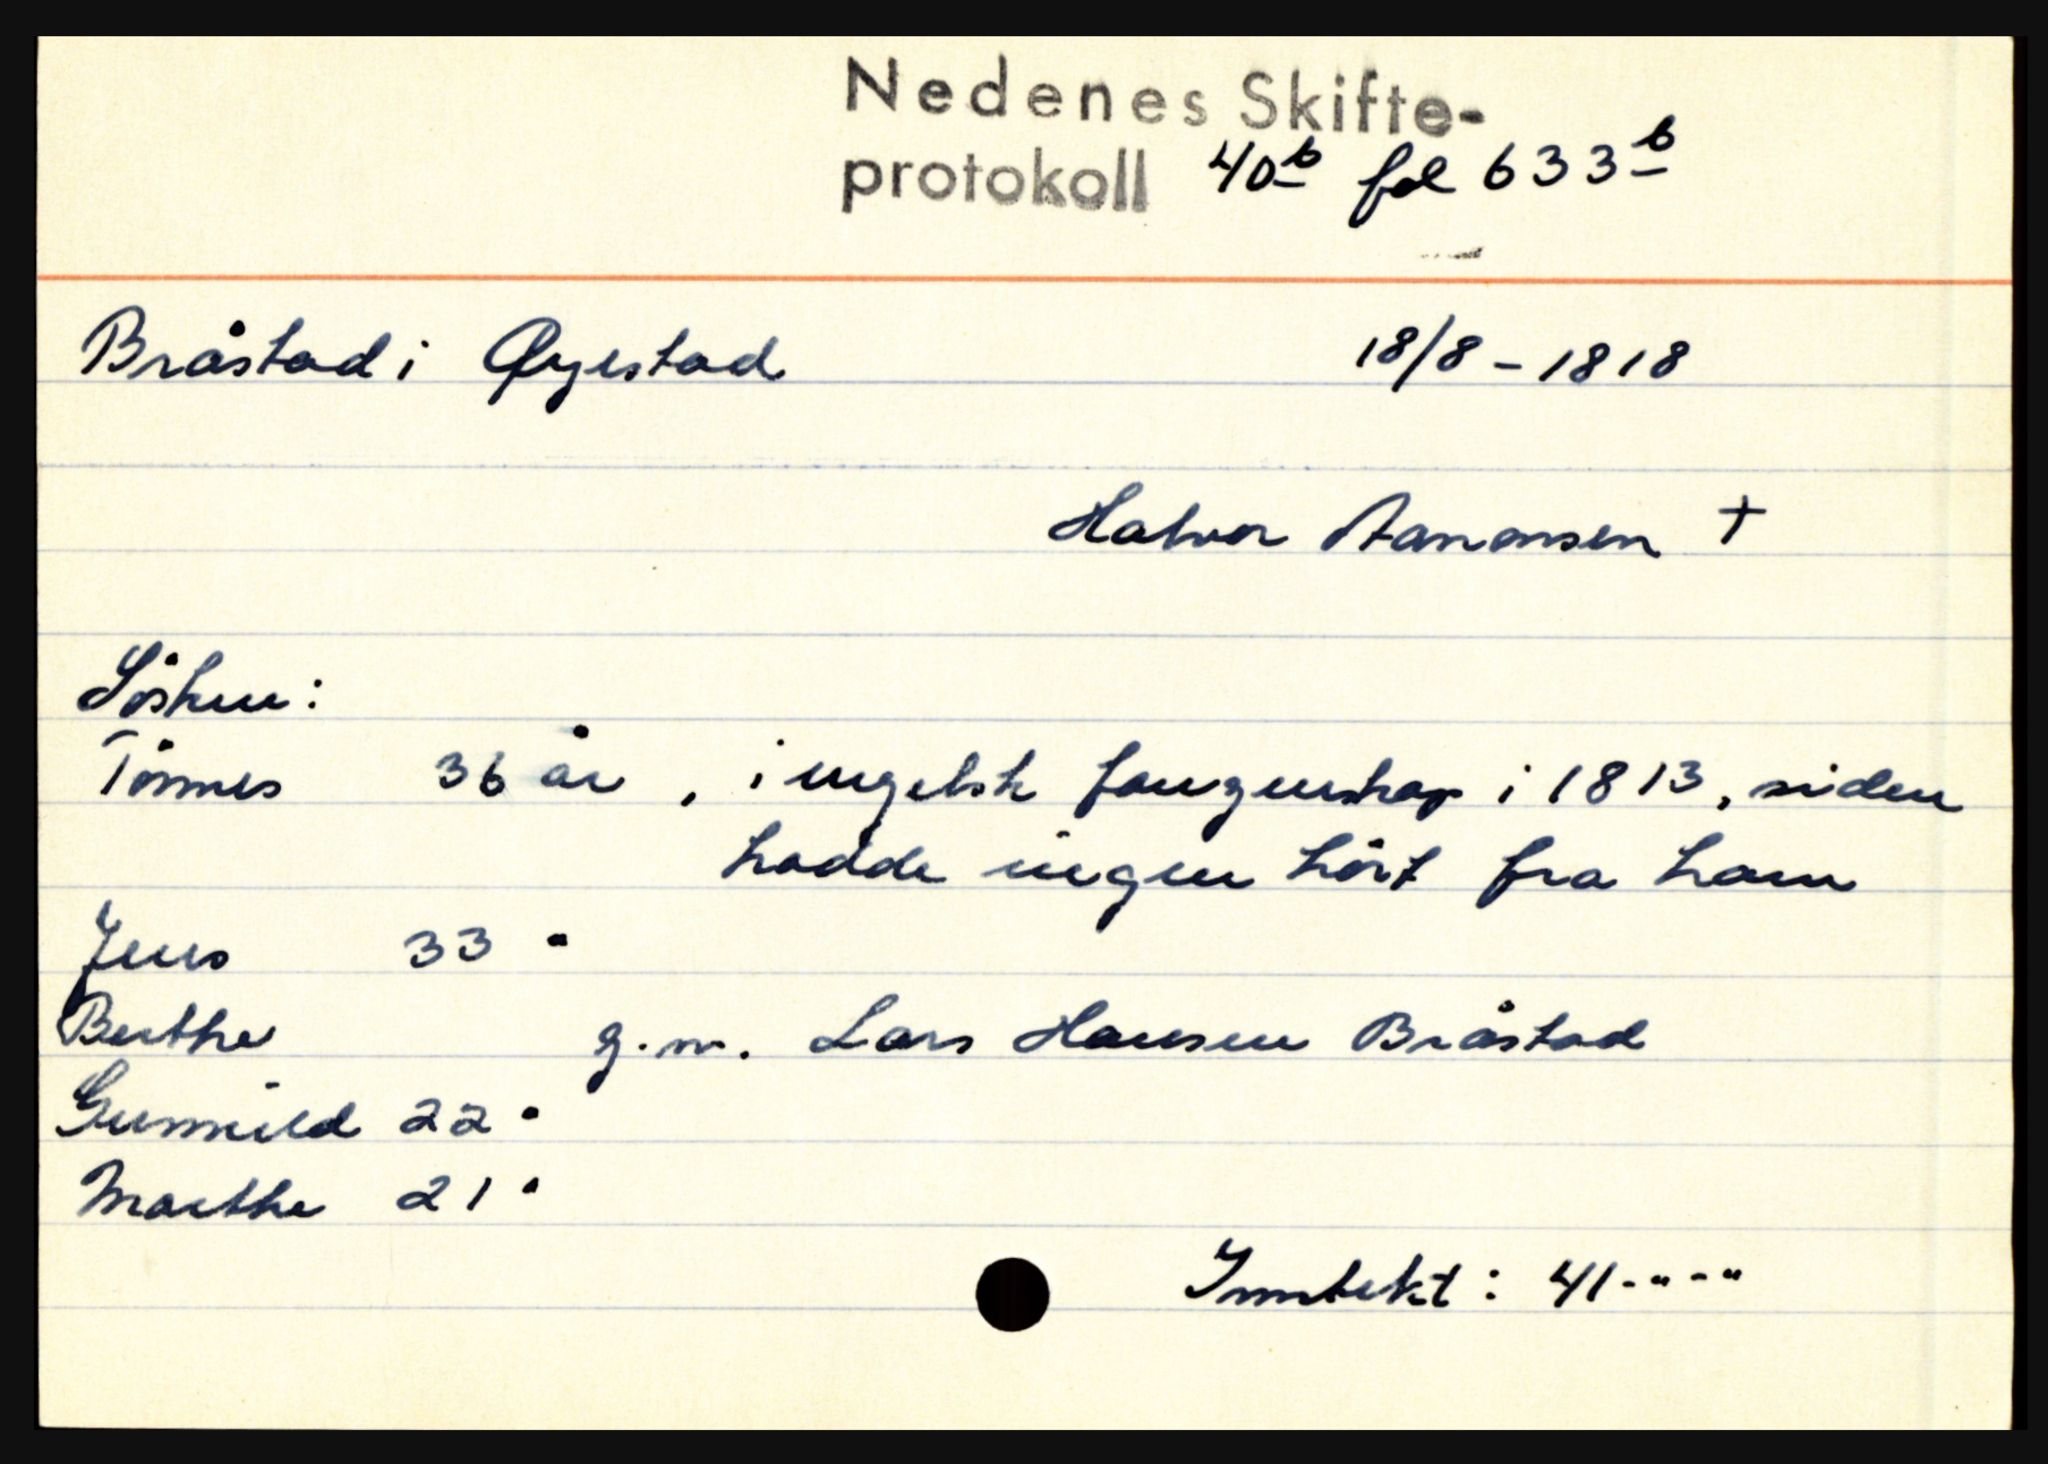 Nedenes Skifte-
protokoll 40b fol 633b
Bråstad i Øyestad 18/8 - 1818
Halvor Aanonsen +
Søsken:
Tönnes 36 år , i engelsk fangenskap i 1813, siden
hadde ingen hört fra ham
Jens 33 "
Berthe g.m. Lars Hansen Bråstad
Gunnild 22 "
Marthe 21 "
Inntekt : 41-"-"